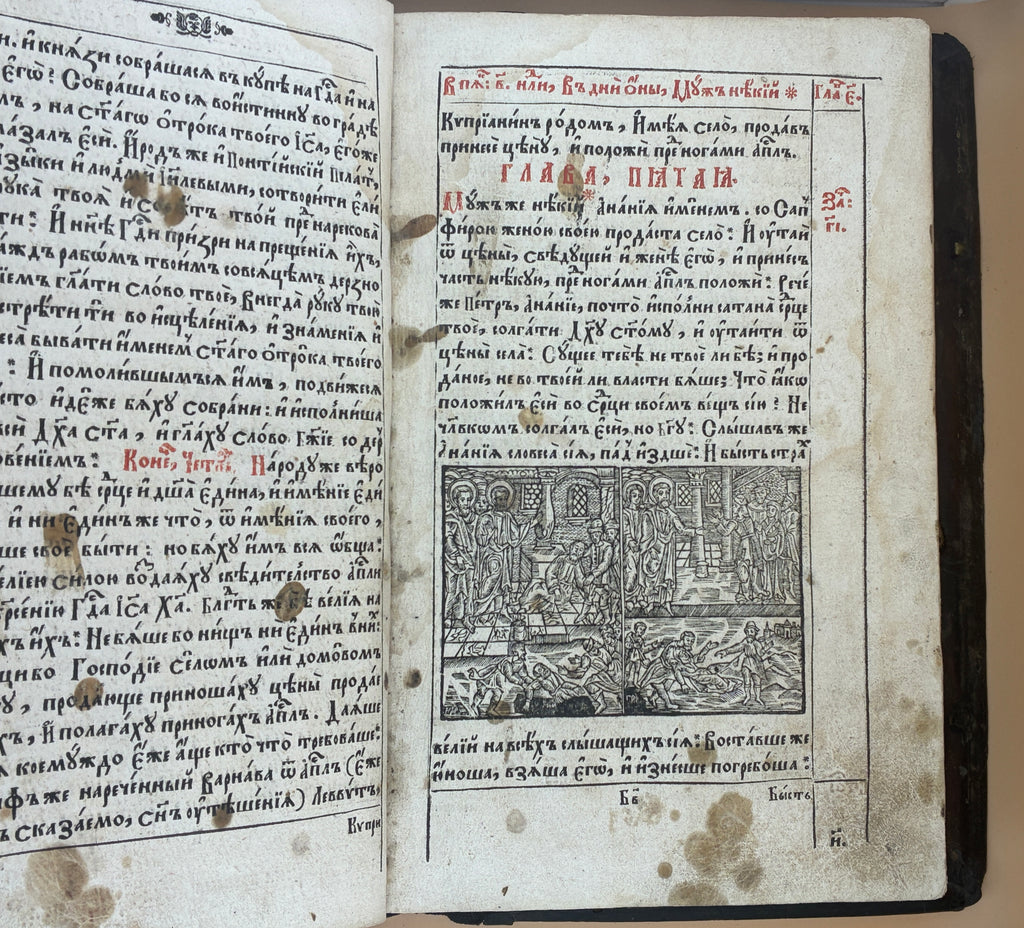 и҆ кнѧ́зи собра́шасѧ въкꙋ́пѣ на Гд҃а и҆ на
є҆гѡ̀: Собра́ша бо сѧ вои́стиннꙋ во гра́дѣ
на ст҃а́гѡ О҆́трока твоего̀ І҆с҃а, є҆го́же
є҆сѝ. И҆́родъ же и҆ Понті́йскїй Пїла́тъ,
ꙗ҆зы́ки и҆ людмѝ І҆и҃левыми, сотвори́ти є҆ли́
рꙋка̀ твоѧ̀ и҆ твой пре́ нарекова
И҆ нн҃ѣ Гд҃и при́зри на преще́нїѧ и҆́хъ,
рабѡ́мъ твои̑мъ совсѧ́цѣмъ дерзно
гл҃ати сло́во твоѐ, Внегда̀ рꙋ́кꙋ твою̀
простре́ти тѝ во и҆сцѣле́нїѧ, и҆ зна́менїѧ и҆
быва́ти и҆́менемъ ст҃а́гѡ О҆́трока твоего̀
: И҆ помоли́вшымъсѧ и҆̀мъ, подви́жесѧ
мѣ́сто и҆дѣ́же бѧ́хꙋ собра́ни: и҆ и҆спо́лнишасѧ
всѝ Дх҃а ст҃а, и҆ гл҃ахꙋ сло́во Бж҃їе со дер
зновенїемъ: Коне́цъ, Четве: Наро́дꙋ же вѣ́ро
вавшемꙋ бѣ̀ ср҃це и҆ дш҃а є҆ди́на, и҆ и҆мѣ́нїе є҆ди́
и҆ ни є҆ди́нъ же что̀, ѿ и҆мѣ́нїѧ своегѡ̀,
своѐ бы́ти: но бѧ́хꙋ и҆̀мъ всѧ ѡ҆́бща:
ве́лїею си́лою возда́ѧхꙋ свѣди́телство а҆п҃ли
воскр҃се́нїю Гд҃а І҆с҃а Х҃а. Благода́ть же бѣ̀ ве́лїѧ на
всѣ́хъ и҆́хъ: Не бѧ́ше бо ни́щъ ни є҆ди́нъ внихъ
Госпо́дїе се́лѡмъ и҆лѝ домѡ́вомъ
прода́юще приноша́хꙋ цѣ́ны прода́е
и҆ полага́хꙋ принога́хъ а҆п҃лъ. Даѧ́ше
коемꙋ́ждо є҆́же а҆́ще кто̀ что̀ тре́боваше:
же нарече́нный Варна́ва ѿ а҆п҃лъ (є҆́же
сказа́емо, сн҃ъ оу҆тѣше́нїѧ) Левѵ́тъ,
Кѵпрі
В пѧ: в҃. нл҃и, Въ днѝ ѻ҆́ны, Мꙋ́жъ нѣ́кїй * Гла е҃.
Кѵпрїа́нинъ ро́домъ, и҆мѣ́ѧ село̀, прода́въ
принесѐ цѣ́нꙋ, и҆ положѝ пре́ ногами а҆п҃лъ.
ГЛАВА, ПѦТАѦ.
Мꙋ́жъ же нѣ́кїй * А҆на́нїѧ и҆́менемъ. со Сап
фі́рою жено́ю свое́ю прода́ста село̀: И҆ оу҆таѝ
ѿ цѣны̀, свѣ́дꙋщей и҆ женѣ̀ є҆гѡ̀, и҆ прине́съ
ча́сть нѣ́кꙋю, пре́ нога́ми а҆п҃лъ положѝ: Рече́
же Пе́тръ, А҆на́нїе, почто̀ и҆спо́лни сатана̀ ср҃це
твоѐ, солга́ти Дх҃ꙋ ст҃о́мꙋ, и҆ оу҆таи́ти ѿ
цѣны̀ села̀: Сꙋ́щее тебѣ̀ не твоѐ ли бѣ̀; и҆ про
да́ное, не во твое́й ли вла́сти бѧ́ше; Что̀ ꙗ҆́кѡ
положи́лъ є҆сѝ во ср҃ци свое́мъ ве́щъ сїю̀: Не
чл҃вкѡмъ солга́лъ є҆сѝ, но Бг҃ꙋ: Слы́шавъ же
А҆на́нїѧ словеса̀ сїѧ̀, па́дъ и҆́здше: И҆ бы́сть стра́х
за҃:
г҃і.
ве́лїй на всѣ́хъ слы́шащихъ сїѧ̀: Воста́вше же
ю҆́ноша, взѧ́ша є҆гѡ̀, и҆ и҆зне́сше погребо́ша:
Бв
Бы́сть
и҃.